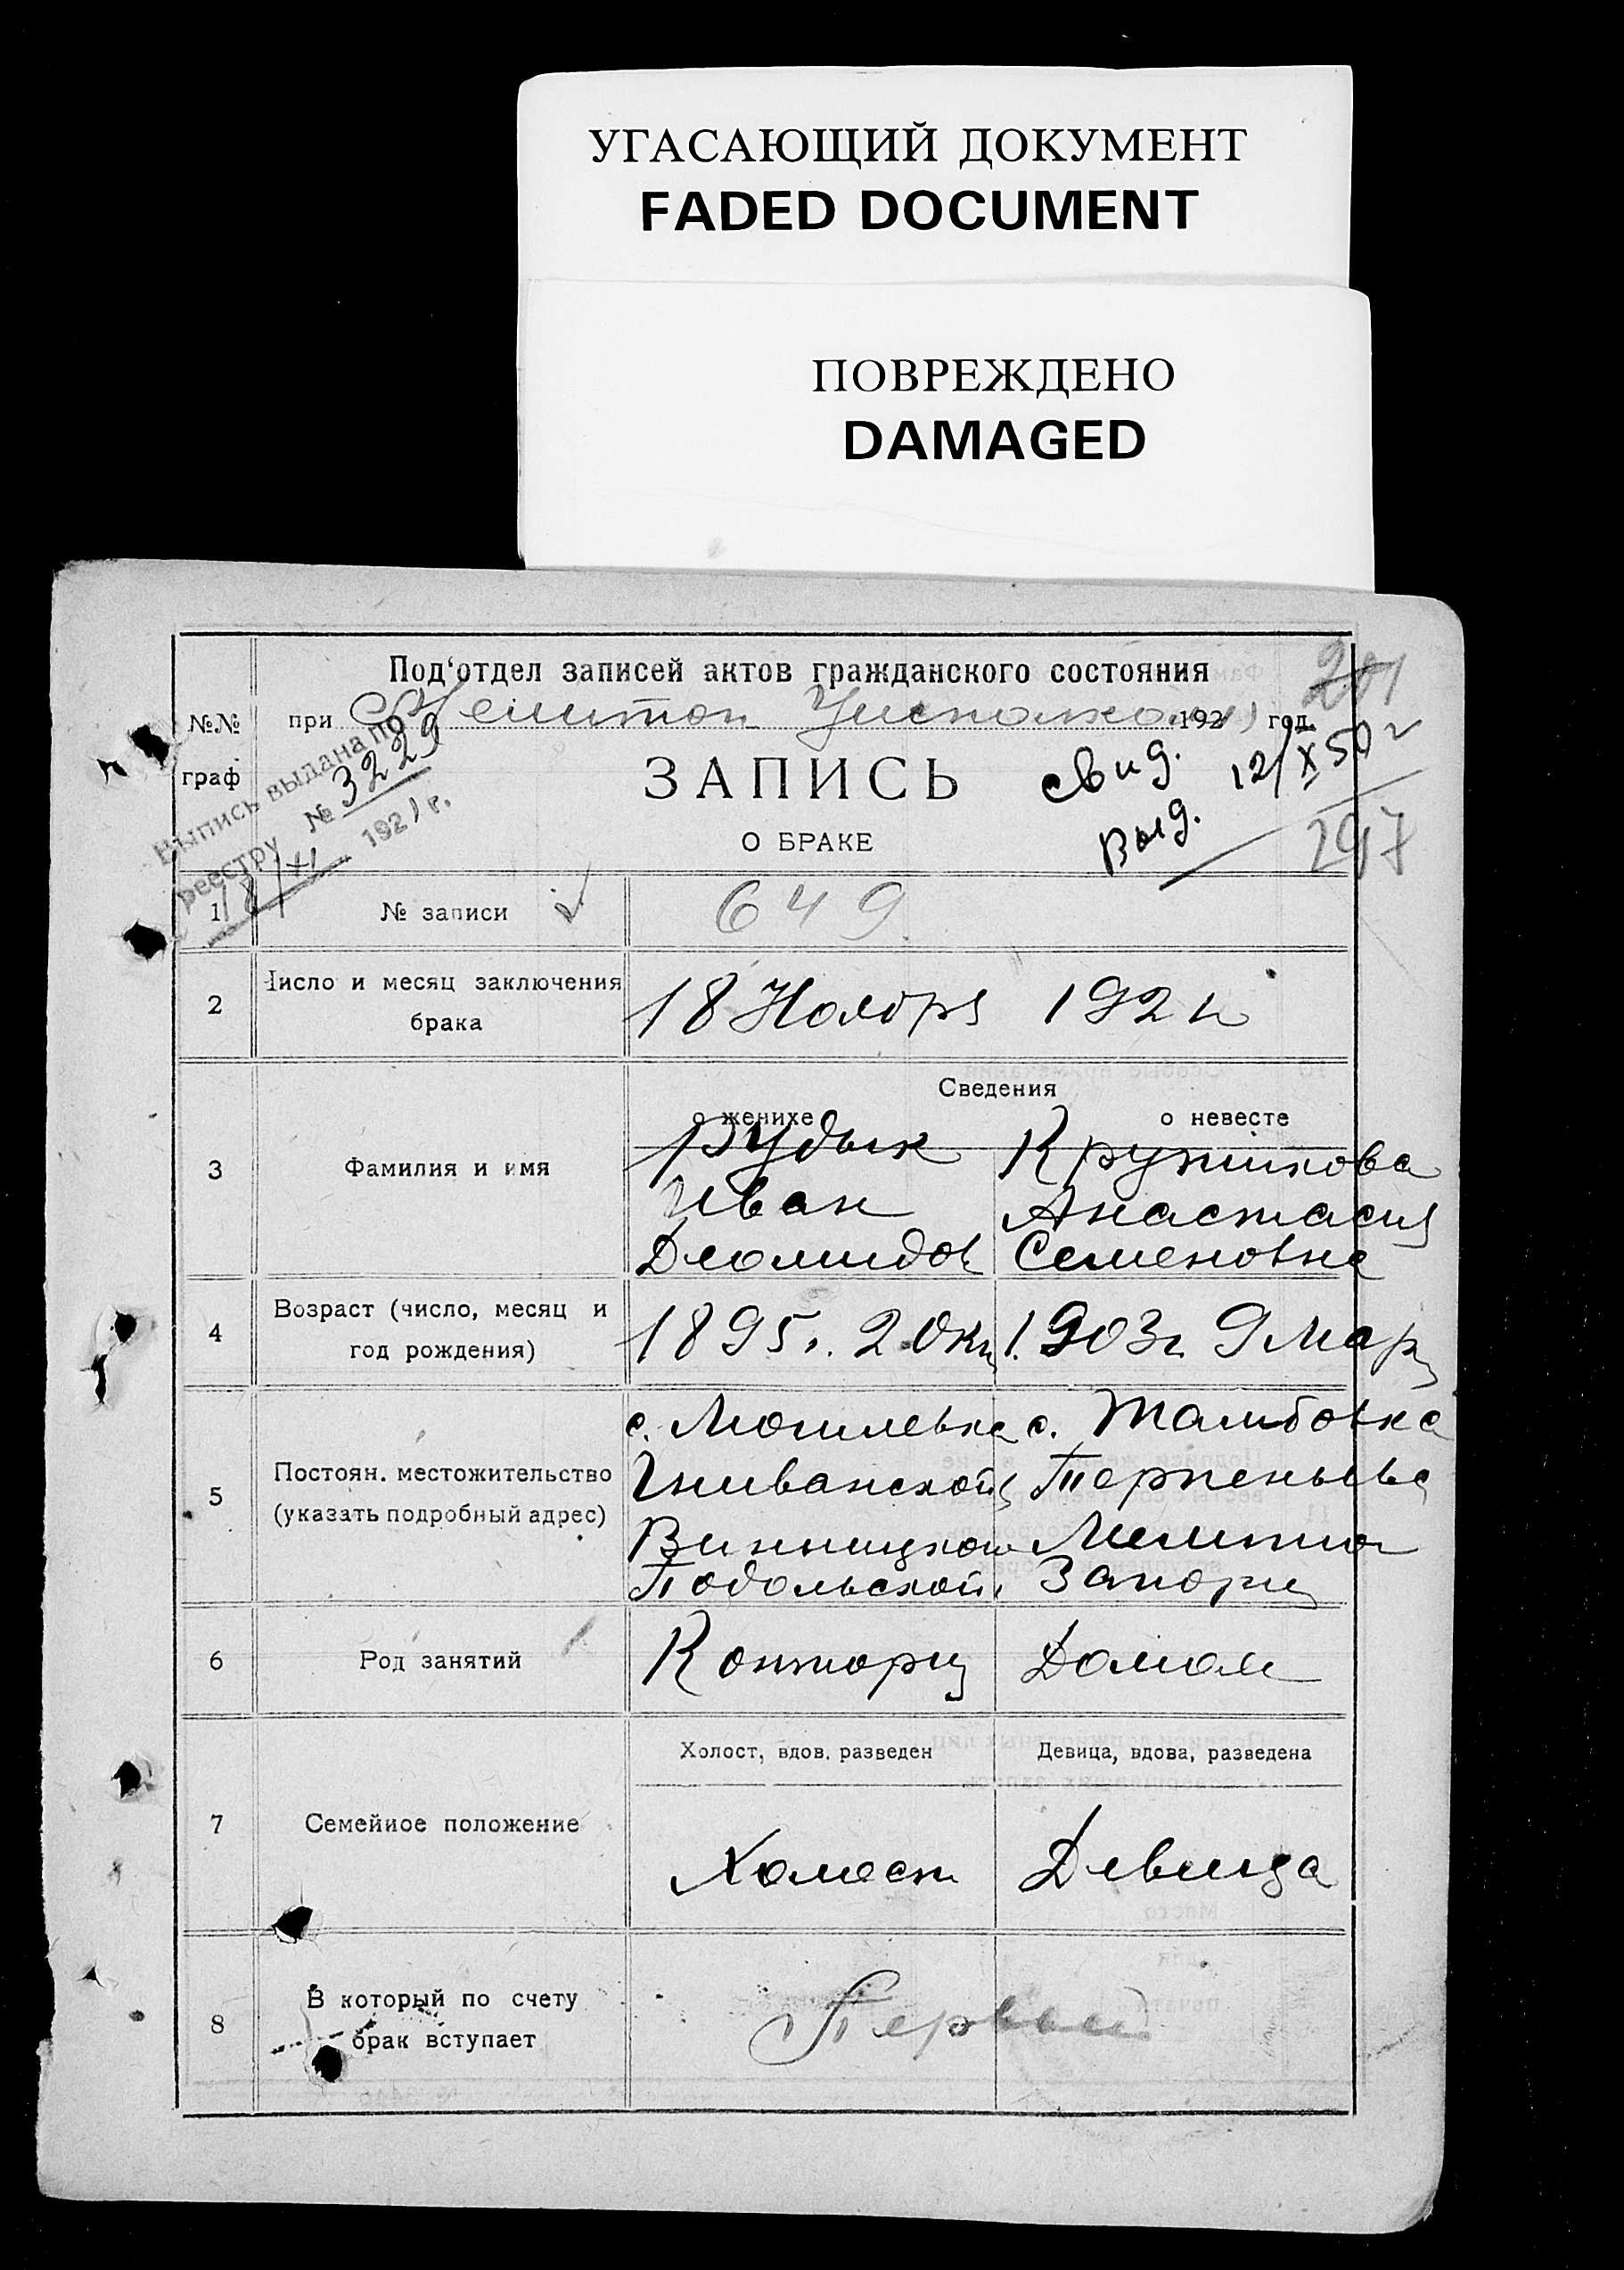 УГАСАЮЩИЙ ДОКУМЕНТ
FADED DOCUMENT
ПОВРЕЖДЕНО
DAMAGED
Под‘отдел записей актов гражданского состояния
201
№№ граф
при Мелитоп Исполкоме 1921 год.
Выпись выдана по
реестру № 3229
18/XI 1921 г.
ЗАПИСЬ
О БРАКЕ
Свид.
выд.
12/X 50 г
297
1 № записи 649
2 Число и месяц заключения
брака
18 Ноября 1921 г
Сведения
о женихе о невесте
3 Фамилия и имя
Рудык Кружикова
Иван Анастасия
Диомидов Семеновна
4 Возраст (число, месяц и
год рождения)
1895 г. 2 Окт 1903 г 9 Мар
5 Постоян. местожительство
(указать подробный адрес)
с. Могилевка с. Тамбовка
Гниванской Терпеньевс
Винницкой Мелитоп
Подольской Запорж
6 Род занятий
Конторщ Домом
7 Семейное положение
Холост, вдов, разведен Девица, вдова, разведена
Холост Девица
8 В который по счету
брак вступает
Первый